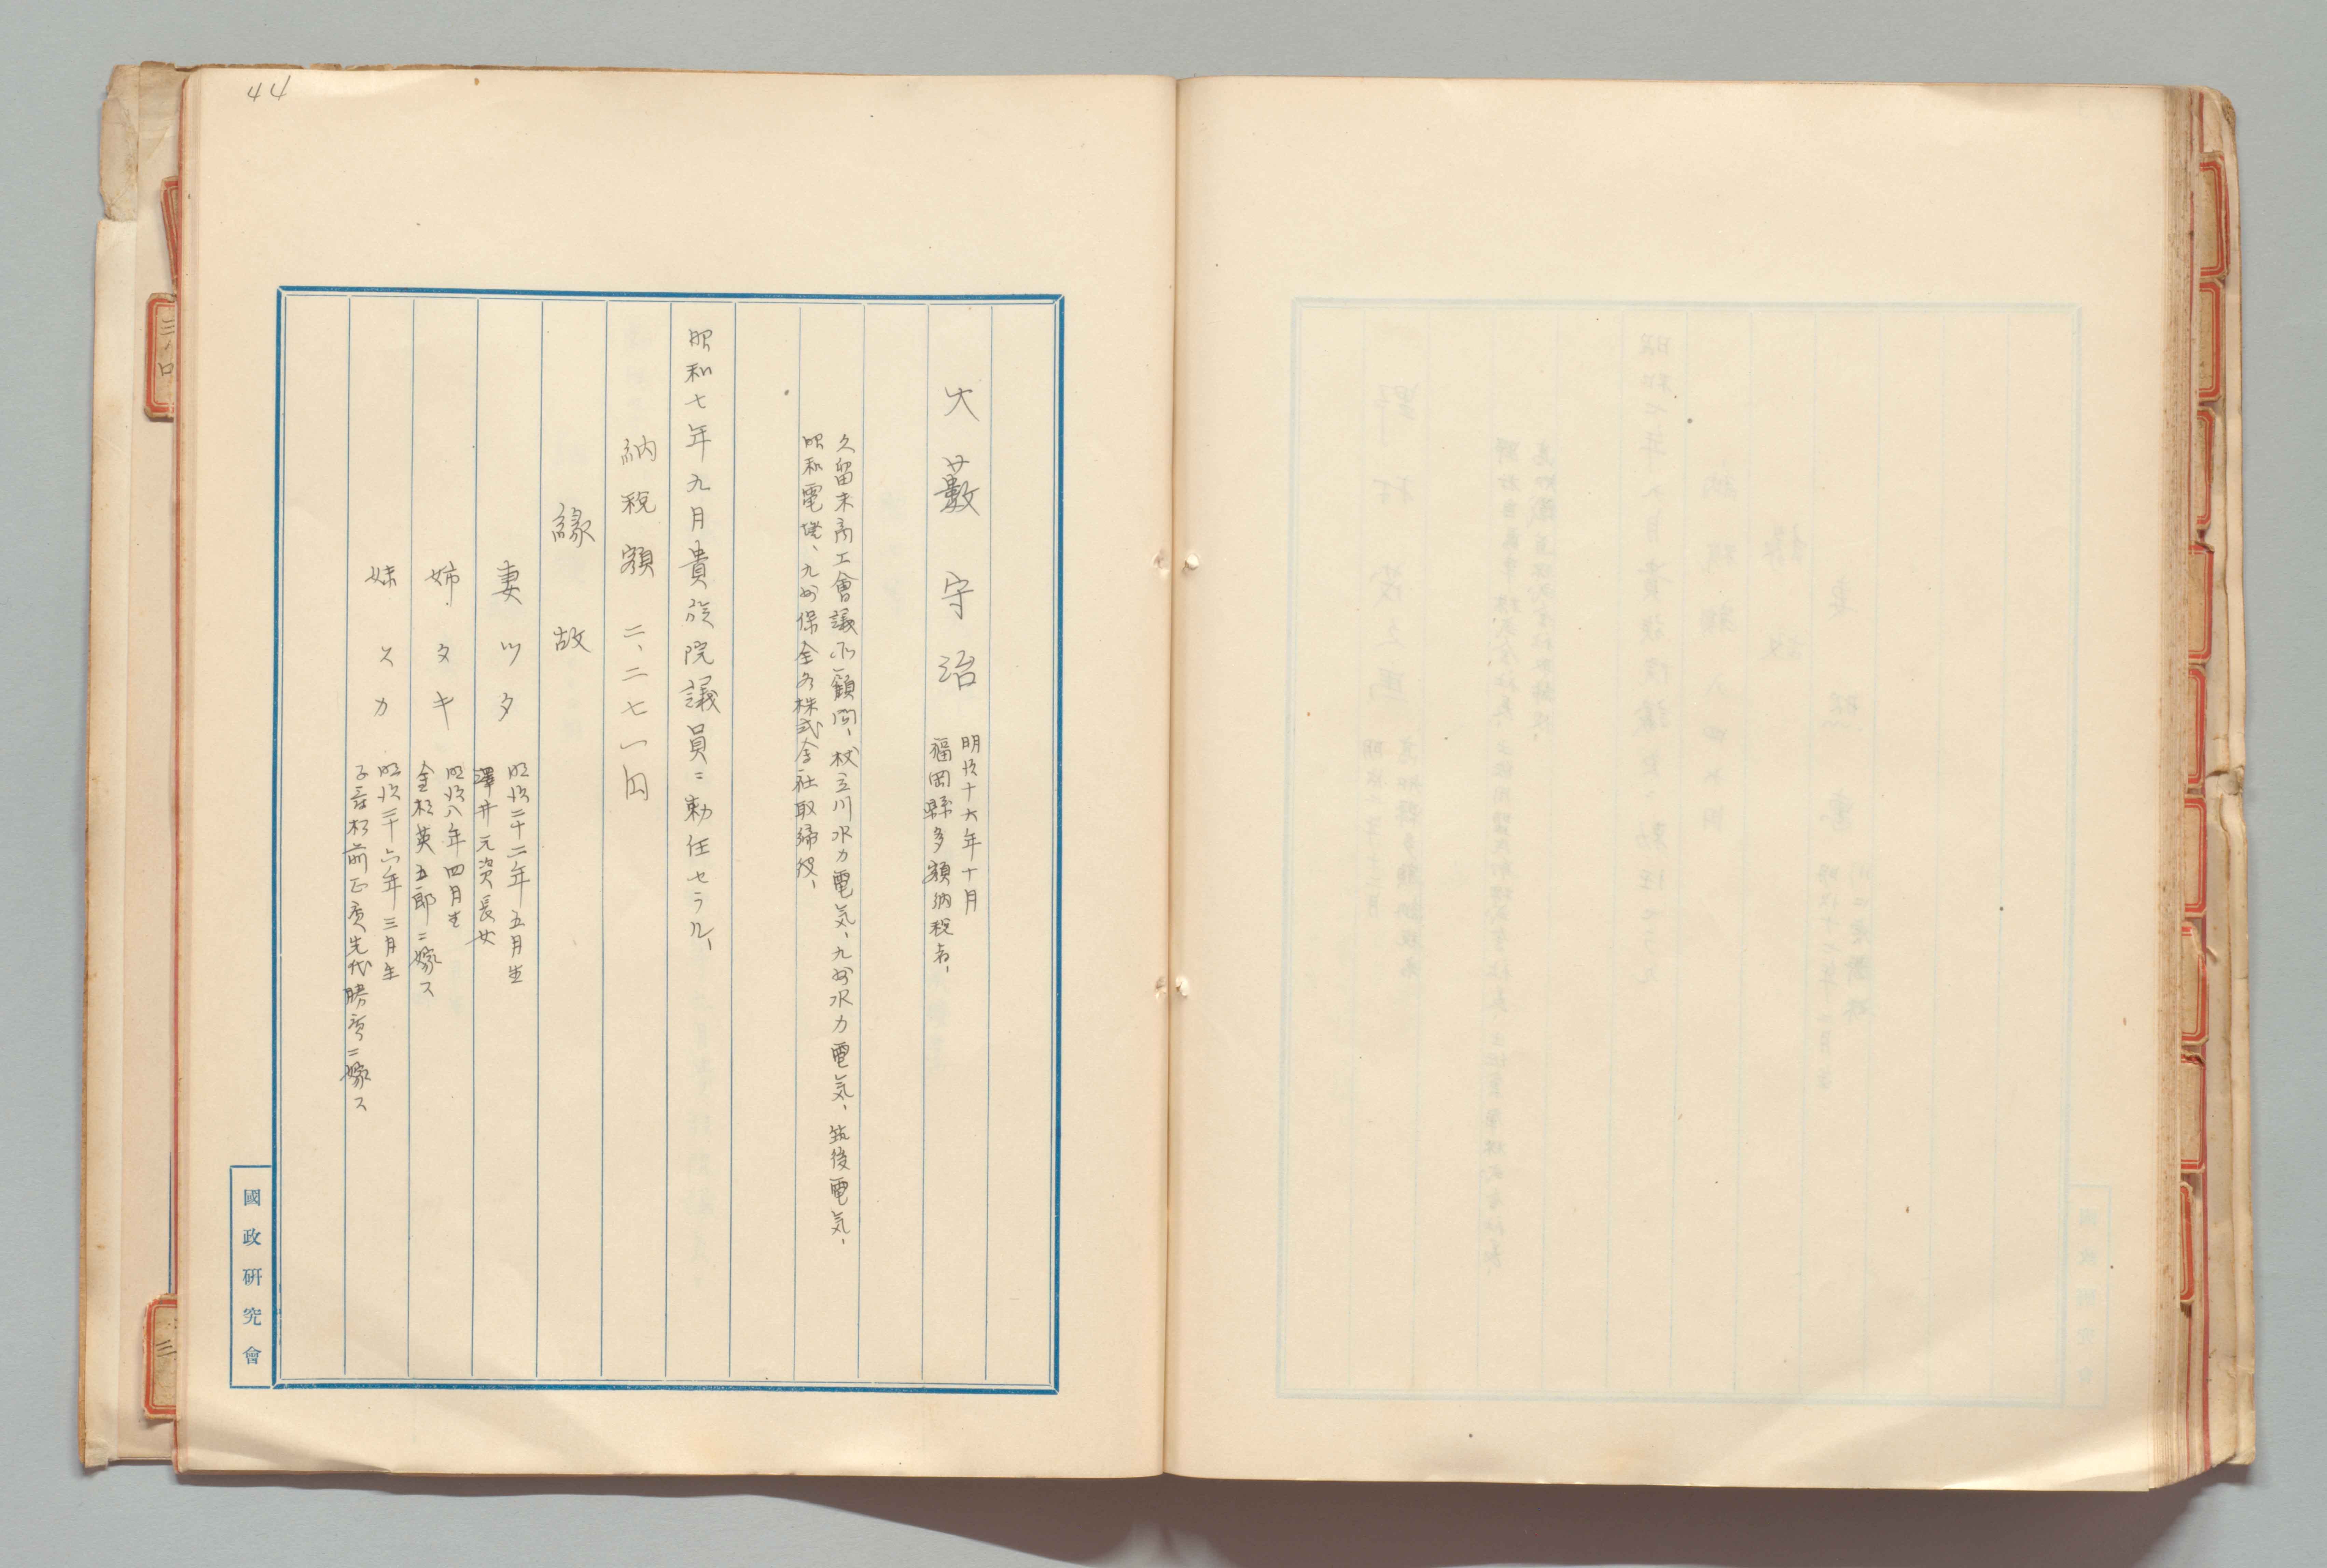 44
大藪守治
明治十六年十月
福岡縣多額納税者、
久留米商工會議所顧問、杖立川水力電気、九州水力電気、筑後電気、
昭和電燈、九州保全各株式会社取締役、
昭和七年九月貴族院議員ニ勅任セラル、
納税額 二、二七一円
縁故
妻 ツタ
明治二十二年五月生
澤井元資長女
姉 タキ
明治八年四月生
金杉英五郎ニ嫁ス
妹 スカ
明治二十六年三月生
子爵杉前正質先代勝質ニ嫁ス
國政研究會
三ノ口
三